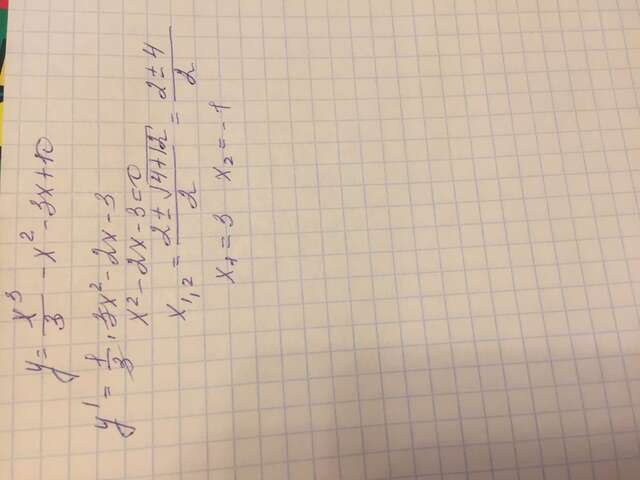 y = x³/3 - x² - 3x + 10
y' = 1/3 · 3x² - 2x - 3
x² - 2x - 3 = 0
x₁,₂ = (2 ± √(4+12))/2 = (2 ± 4)/2
x₁ = 3 x₂ = -1